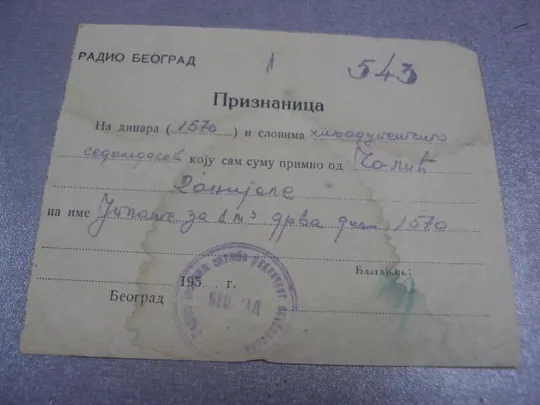 РАДИО БЕОГРАД
543
Признаница
На динара (1570) и словима хиљадупетсто
седамдесет коју сам суму примио од Чолић
Данијеле
на име Уплате за 1 m³ дрва дин 1570
Благајник:
195 г.
Београд